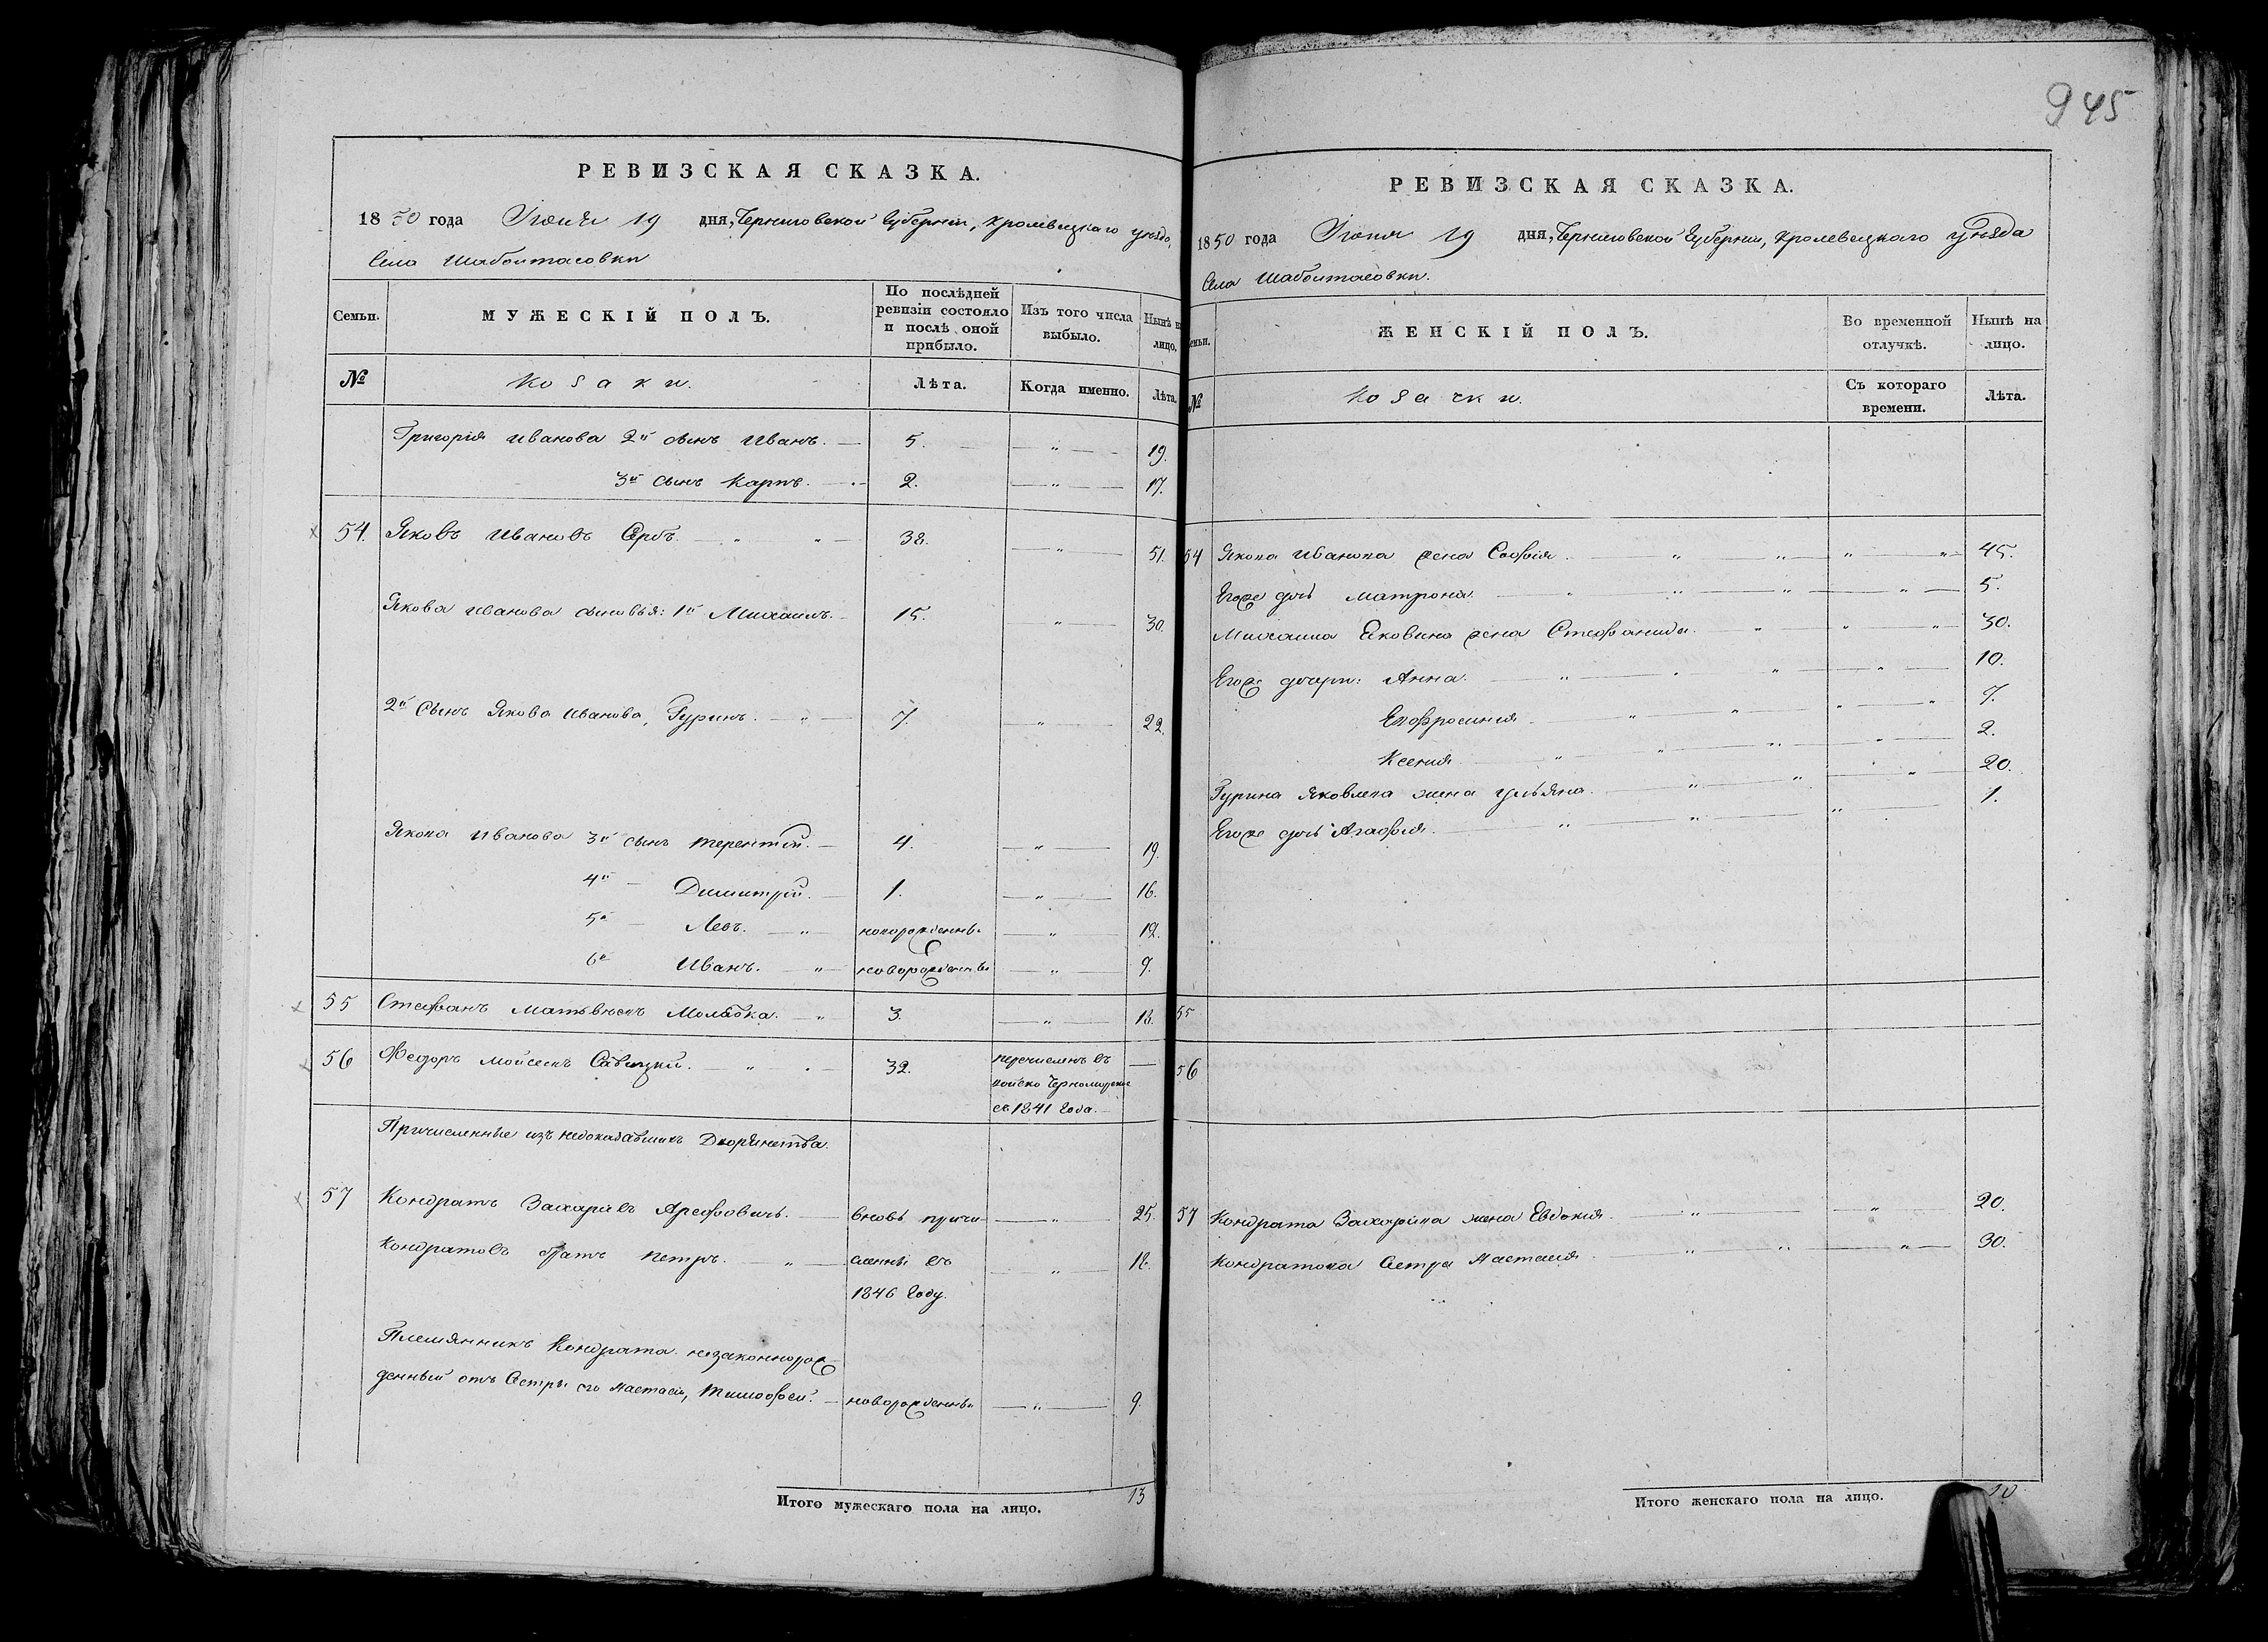 945
РЕВИЗСКАЯ СКАЗКА.
1850 года Іюня 19 дня, Черниговской Губерніи, Кролевецкаго уѣзда,
Села Шабалтасовки
Семьи. МУЖЕСКІЙ ПОЛЪ. По послѣдней ревизіи состояло и послѣ оной прибыло. Изъ того числа выбыло. Нынѣ на лицо.
№ Козаки. Лѣта. Когда именно. Лѣта.
Григорія Иванова 2й сынъ Иванъ. — 5. — „ — 19.
3й сынъ Карпъ. — 2. — „ — 17.
54. Яковъ Ивановъ Сербъ. — „ „ — 38. — „ — 51.
Якова Иванова сыновья: 1й Михаилъ. — 15. — „ — 30.
2й Сынъ Якова Иванова, Гуринъ. — „ — 7. „ — 22.
Якова Иванова 3й сынъ Терентій. — 4. — „ — 19.
4й — Димитрій. — 1. — „ — 16.
5й — Левъ. — „ новорожденны — „ — 12.
6й Иванъ. — „ — новорожденны — „ — 9.
55 Стефанъ Матвѣевъ — „ 3. — „ — 18.
56 Федоръ Мойсеевъ Савицкій. — „ — 32. перечисленъ въ —
войско Черноморское
съ 1841 года. —
Причисленные изъ недоказавшихъ Дворянства.
57 Кондратъ Захаріевъ Арефовичъ. — вновь причи- — „ — 25.
Кондратовъ братъ Петръ. — „ — сленны въ — „ — 18.
1846 году.
Племянникъ Кондрата незаконнорож-
денный отъ Сестры его Настасіи, Тимофей. — новорожденны — „ — 9.
Итого мужескаго пола на лицо. 13
РЕВИЗСКАЯ СКАЗКА.
1850 года Іюня 19 дня, Черниговской Губерніи, Кролевецкаго уѣзда
Села Шабалтасовки.
Семьи. ЖЕНСКІЙ ПОЛЪ. Во временной отлучкѣ. Нынѣ на лицо.
№ Козачки. Съ котораго времени. Лѣта.
54 Якова Иванова жена Софія. „ „ — „ — „ — 45.
Егоже дочь Матрона. — „ „ „ — „ — 5.
Михаила Яковлева жена Стефанида. „ — „ — „ 30.
Егоже дочери: Анна. — „ — „ — „ — „ — 10.
Ефросинія — „ — „ — „ — „ 7.
Ксенія — „ — „ — „ — „ — 2.
Гурина Яковлева жена Ульяна. — „ — „ — „ — 20.
Егоже дочь Агафія. — „ — „ — „ — 1.
55
56
57 Кондрата Захаріева жена Евдокія — „ — „ — 20.
Кондратова Сестра Настасія — „ — „ — „ — 30.
Итого женскаго пола на лицо. 10